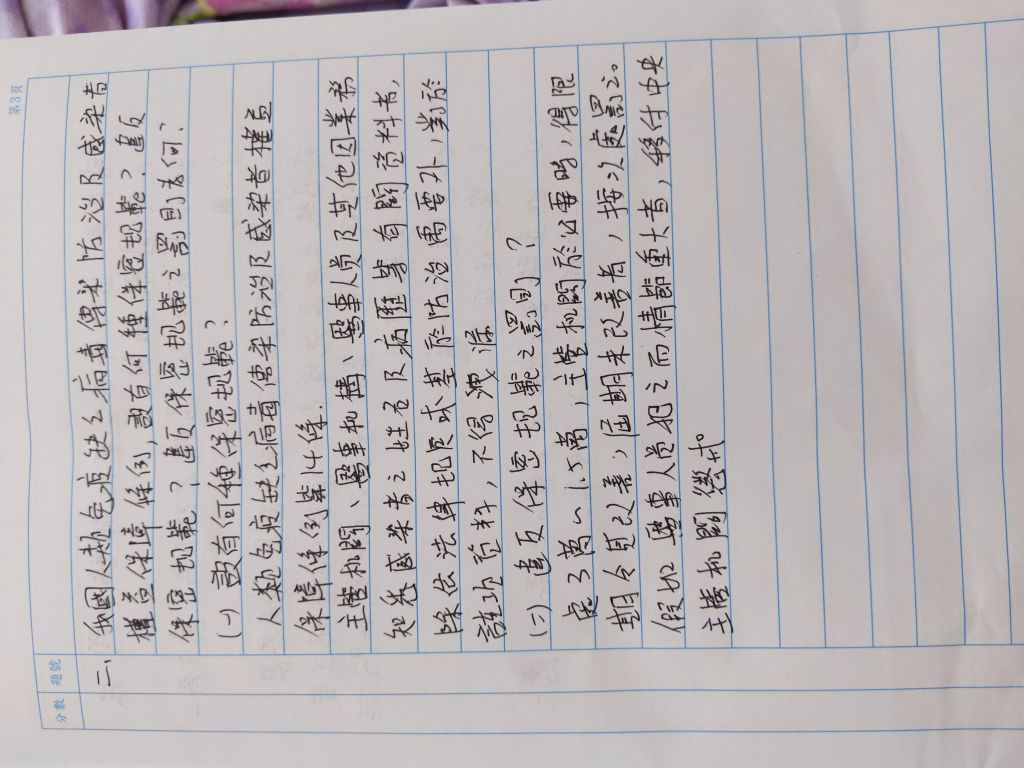 第3頁
分數 題號
二、我國人類免疫缺乏病毒傳染防治及感染者
權益保障條例,設有何種保密規範?違反
保密規範?違反保密規範之罰則為何?
(一)設有何種保密規範?
人類免疫缺乏病毒傳染防治及感染者權益
保障條例第14條.
主管机關、醫事机構、醫事人員及其他因業務
知悉感染者之姓名及病歷等有關資料者,
除依法律規定或基於防治需要外,對於
該項資料,不得洩漏
(二)違反保密規範之罰則?
處3萬~15萬,主管机關於必要時,得限
期令其改善,屆期未改善者,按次處罰之。
假如醫事人員犯之而情節重大者,移付中央
主管机關懲戒。